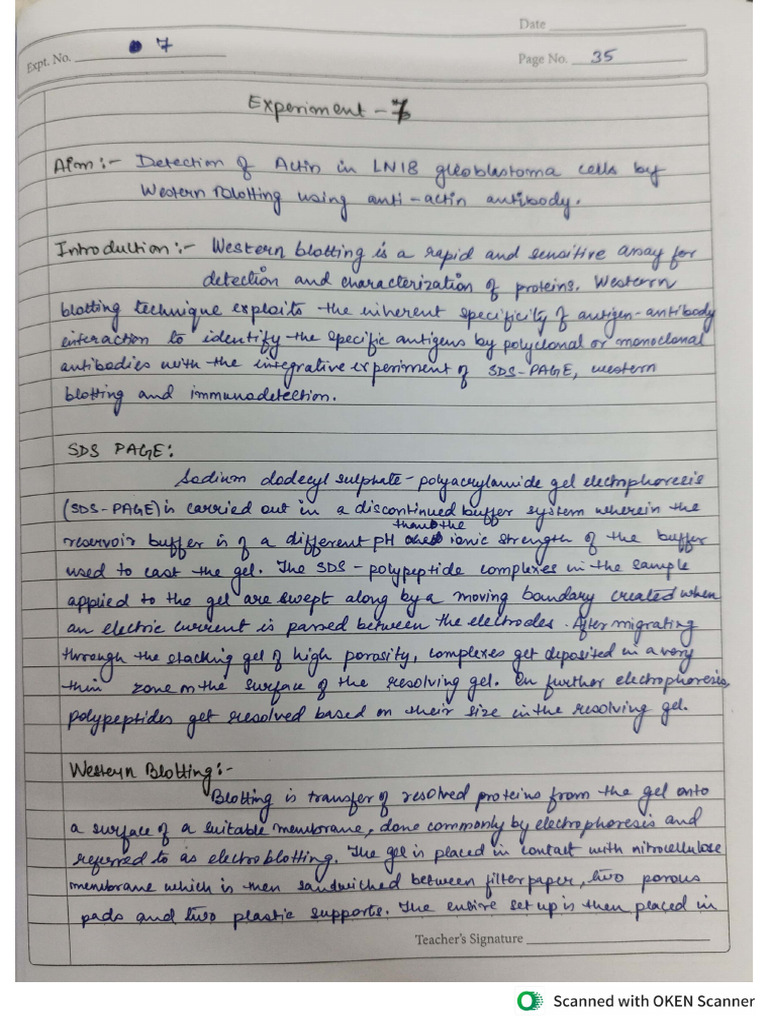 Date
Expt. No. 7
Page No. 35
Experiment - 7
Aim:- Detection of Actin in LN18 gleoblastoma cells by
Western Blotting using anti-actin antibody.
Introduction:- Western blotting is a rapid and sensitive assay for
detection and characterization of proteins. Western
blotting technique exploits the inherent specificity of antigen-antibody
interaction to identify the specific antigens by polyclonal or monoclonal
antibodies with the integrative experiment of SDS-PAGE, western
blotting and immunodetection.
SDS PAGE:
Sodium dodecyl sulphate-polyacrylamide gel electrophoresis
(SDS-PAGE) is carried out in a discontinued buffer system wherein the
reservoir buffer is of a different pH than the ionic strength of the buffer
used to cast the gel. The SDS-polypeptide complexes in the sample
applied to the gel are swept along by a moving boundary created when
an electric current is passed between the electrodes. After migrating
through the stacking gel of high porosity, complexes get deposited in a very
thin zone on the surface of the resolving gel. On further electrophoresis,
polypeptides get resolved based on their size in the resolving gel.
Western Blotting:-
Blotting is transfer of resolved proteins from the gel onto
a surface of a suitable membrane, done commonly by electrophoresis and
referred to as electroblotting. The gel is placed in contact with nitrocellulose
membrane which is then sandwiched between filter paper, two porous
pads and two plastic supports. The entire set up is then placed in
Teacher's Signature
Scanned with OKEN Scanner